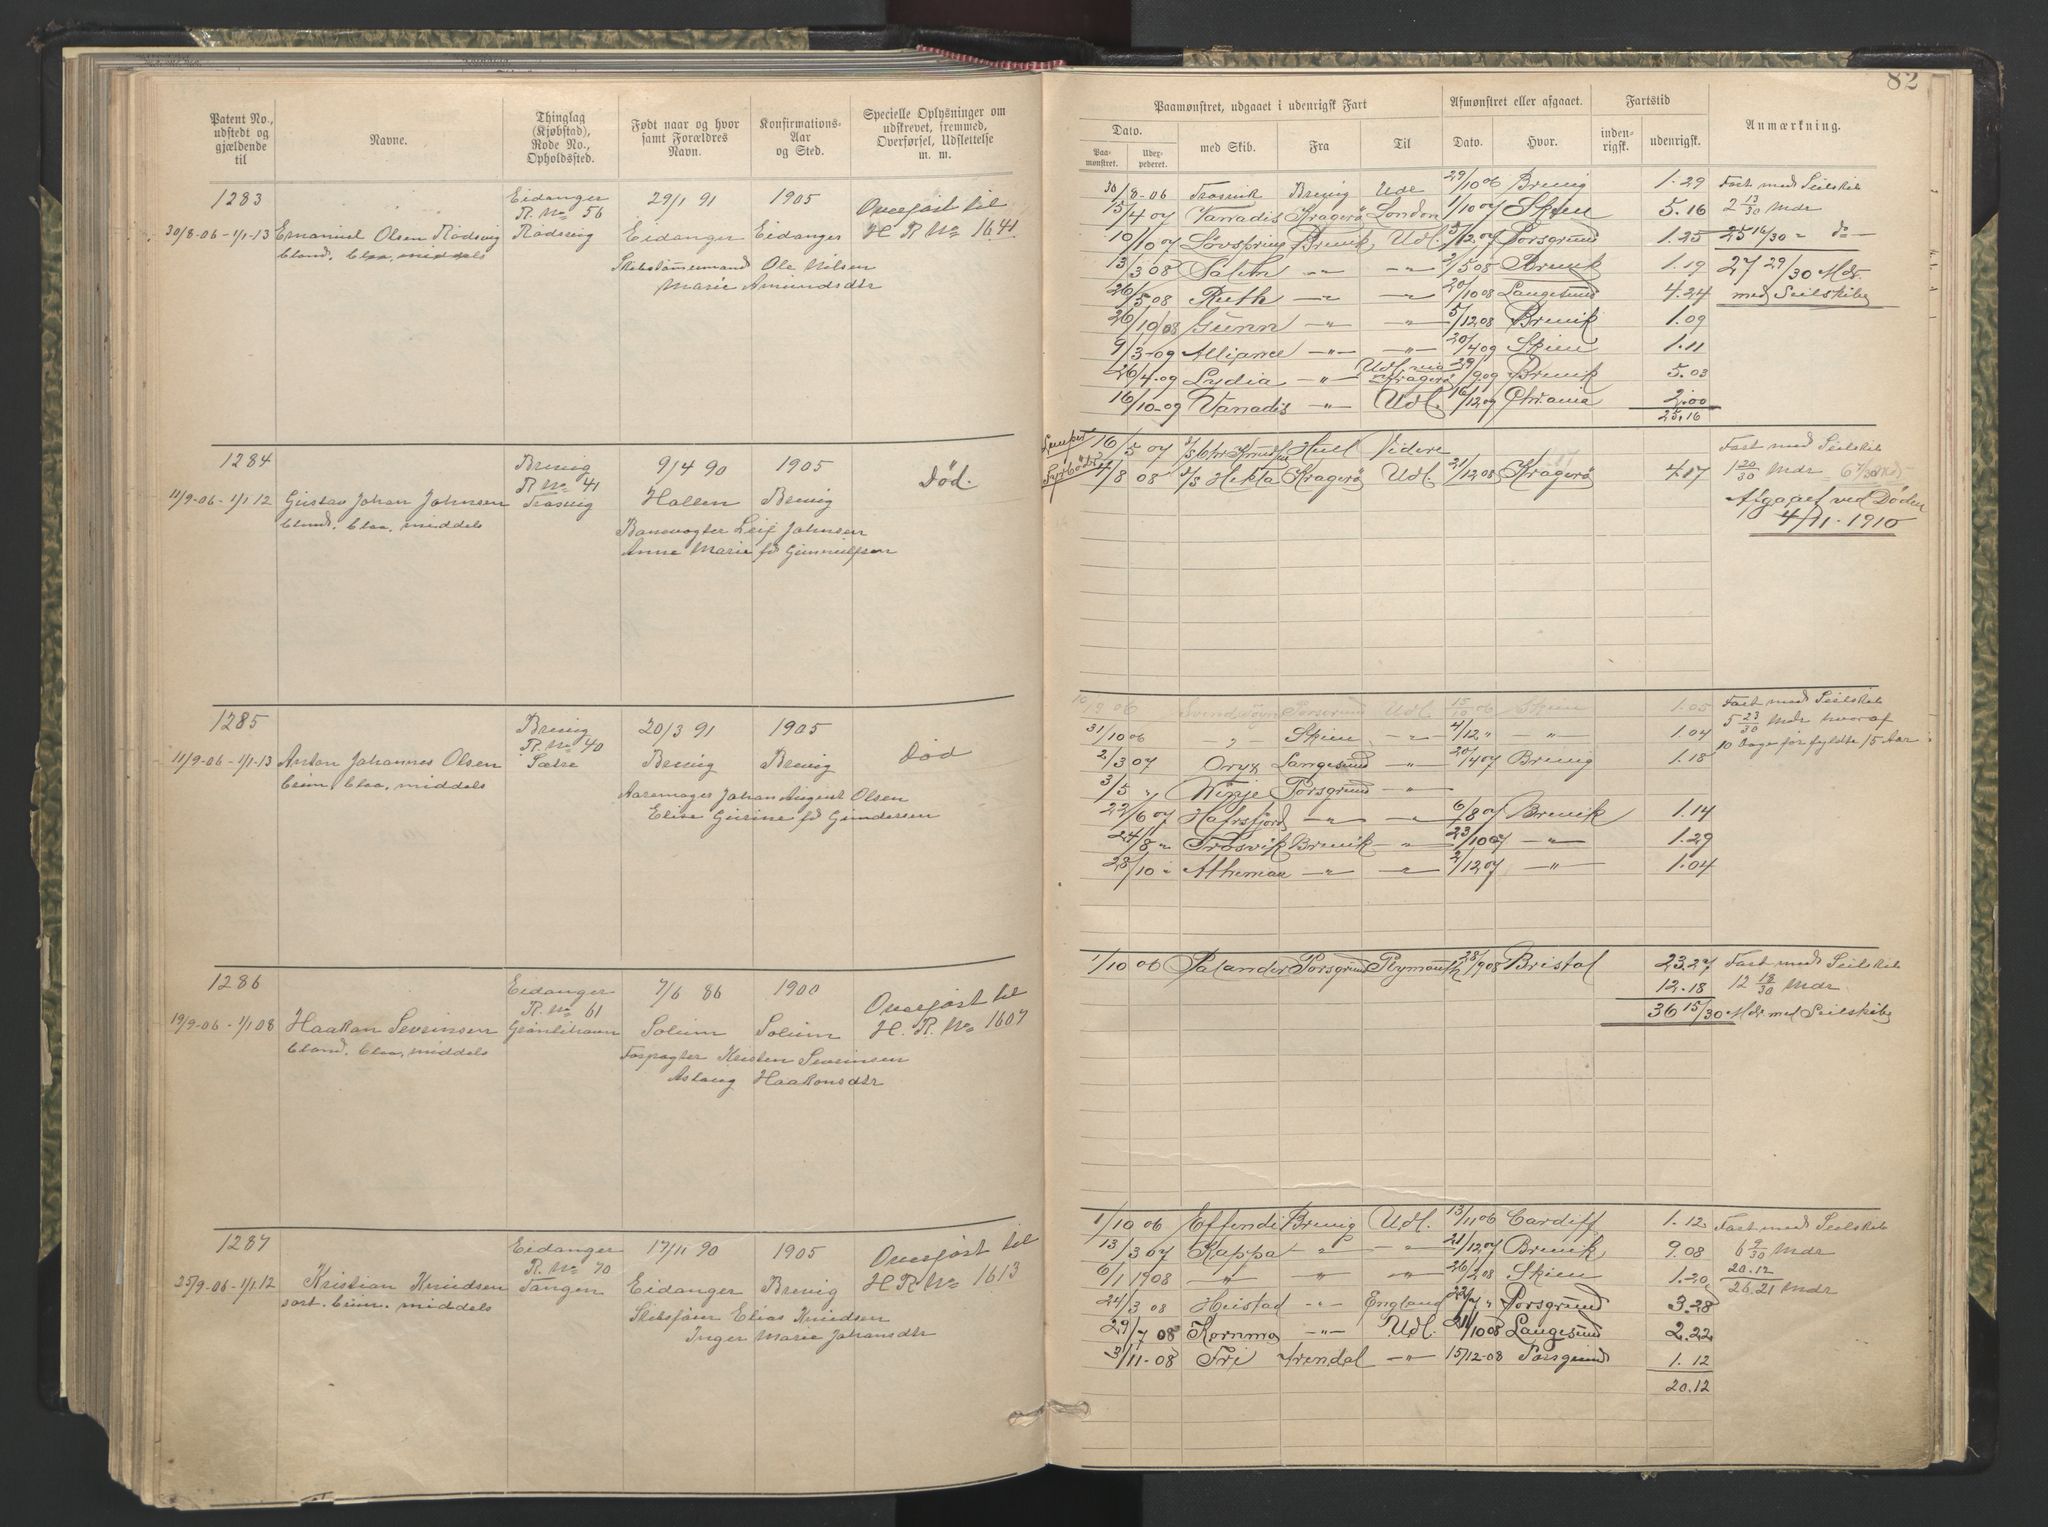 82
Patent No., udstedt og gjældende til
Navne.
Thinglag (Kjøbstad), Rode No., Opholdssted.
Født naar og hvor samt Forældres Navn.
Konfirmations-Aar og Sted.
Specielle Oplysninger om udskrevet, fremmed, Overførsel, Udslettelse m. m.
Paamønstret, udgaaet i udenrigsk Fart
Afmønstret eller afgaaet.
Fartstid
Anmærkning.
Dato.
Paamønstret.
Udexpederet.
med Skib.
Fra
Til
Dato.
Hvor.
indenrigsk.
udenrigsk.
1283
Eidanger
29/1 91
1905
Overført til
R. No 56
30/8-06 - 1/1-13 Emanuel Olsen Rødsvig
Rødsvig
Eidanger
Eidanger
H R No 1641
blond, blaa, middels
Skibstømmermand Ole Nilsen
Marie Amundsdtr
30/8-06 Trosvik Brevig Ude 29/10 06 Brevig 1.29 Fart med Seilskib
15/4 07 Vanadis Kragerø London 1/10 07 Skien 5.16 2 13/30 Mdr
10/10 07 Løvspring Brevik Udl. 5/12 07 Porsgrund 1.25 25 16/30 " do —
13/3 08 Salem —"— —"— 2/5 08 Brevik 1.19 27 29/30 Mdr.
26/5 08 Ruth —"— —"— 20/10 08 Langesund 4.24 med Seilskibe
26/10 08 Gunn —"— —"— 5/12 08 Brevik 1.09
9/3-09 Alliance —"— —"— 20/4 09 Skien 1.11
26/4-09 Lydia —"— Udl via Kragerø 29/9 09 Brevik 5.03
16/10-09 Vanadis —"— Udl. 16/12 09 Chr.ania 2.00
25.16
1284
Brevig
9/4 90
1905
Død.
R No 41
11/9-06 - 1/1 12 Gustav Johan Johnsen
Trosvig
Hollen
Brevig
blond, blaa, middels
Banevogter Leif Johnsen
Anne Marie fd Gunnulfsen
Lemper 16/5 07 Hull Videre Fart med Seilskib
Fyrbøder 4/8 08 D/S Hekla Kragerø Udl. 21/12 08 Kragerø 4.17 1 20/30 Mdr
Afgaaet ved Døden
4/11 - 1910
1285
Brevig
20/3 91
1905
Død
R. No 40
11/9-06 - 1/1-13 Anton Johannes Olsen
Sætre
Brevig
Brevig
brun, blaa, middels
Aaremager Johan August Olsen
Elise Gurine fd Gundersen
10/9 06 Svend Føyn Porsgrund Udl. 15/10 06 Skien 1.05 Fart med Seilskib
31/10 06 " Skien —"— 4/12 " —"— 1.04 5 23/30 Mdr hvoraf
2/3 07 Oryx Langesund —"— 20/4 07 Brevig 1.18 10 Dage før fyldte 15 Aar
3/5 " Porsgrund —"—
22/6 07 Hafrsfjord —"— —"— 6/8 07 Brevik 1.14
24/8 " Trosvik Brevik —"— 23/10 07 —"— 1.29
28/10 " —"— —"— 2/12 07 —"— 1.04
1286
Eidanger
7/6 86
1900
Overført til
R. No 61
19/9-06 - 1/1 08 Haakon Severinsen
Grønlihavn
Solum
Solum
H. R. No 1607
blond, blaa, middels
Forpagter Kristen Severinsen
Aslaug Haakonsdtr
1/10 06 Salander Porsgrund Plymouth 28/9 08 Bristol 23.27 Fart med Seilskib
12.18 12 18/30 Mdr
36 15/30 Mdr med Seilskibe
1287
Eidanger
17/11 90
1905
Overført til
R. No 70
25/9-06 - 1/1 12 Kristian Knudsen
Tangen
Eidanger
Brevig
H R No 1613
sort, brun, middels
Skibsfører Elias Knudsen
Inger Marie Johansdtr
1/10 06 Effendi Brevig Udl. 13/11 06 Cardiff 1.12 Fart med Seilskib
13/3 07 Kappa —"— —"— 21/12 07 Brevik 9.08 6 9/30 Mdr
6/1 1908 —"— —"— —"— 26/2 08 Skien 1.20 20.12
24/3 08 Heistad —"— England 22/7 " Porsgrund 3.28 26.21 Mdr
29/7 08 Kornmo —"— Udl. 21/10 08 Langesund 2.22
3/11-08 Fri Arendal —"— 15/12-08 Porsgrund 1.12
20.12